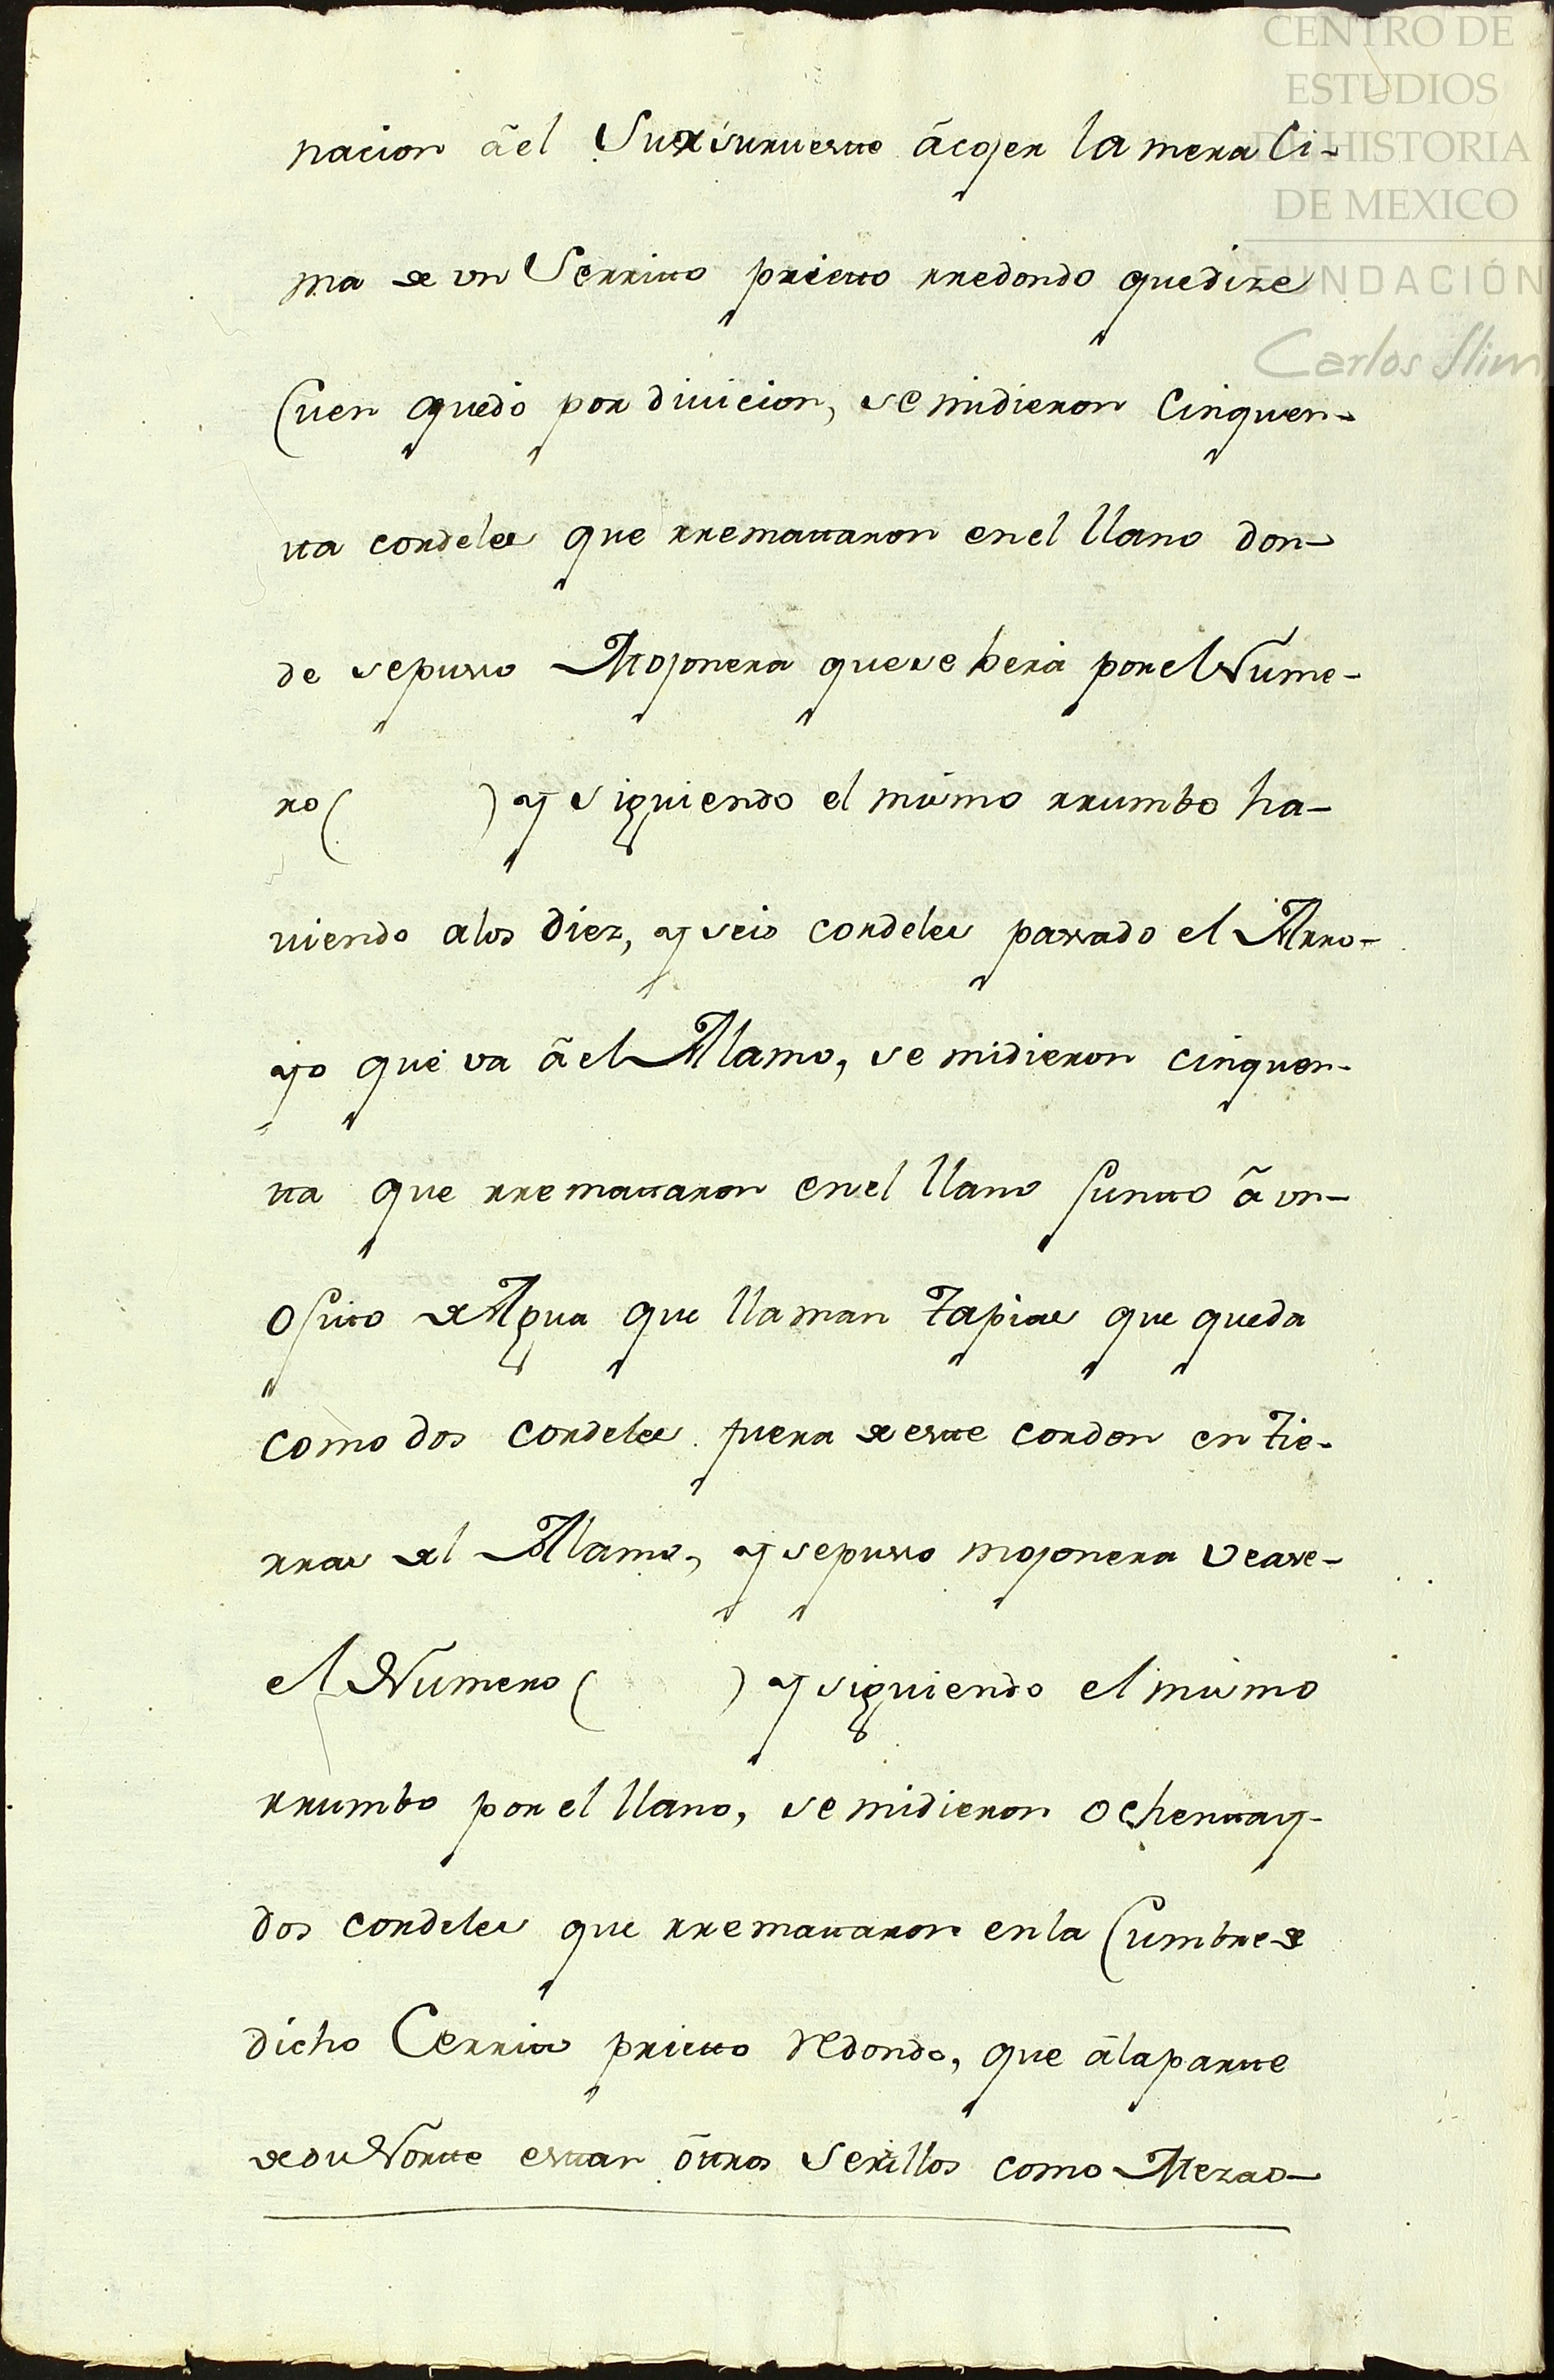 CENTRO DE
ESTUDIOS
DE HISTORIA
DE MEXICO
FUNDACIÓN
Carlos Slim
nacion ãel Sursurueste ãcojer la mera Ci-
ma de vn Serritto prietto rredondo que dize
Cuen quedo por diuicion, se midieron Cinquen-
tta cordeles que rremattaron en el llano don-
de se pusso Mojonera que se berá por el Nume-
ro ( ) y siguiendo el mismo rrumbo ha-
uiendo a los diez, y seis cordeles passado el Arro-
yo que va ãel Alamo, se midieron cinquen-
tta que rremattaron en el llano Juntto ã vn-
ojitto de Agua que llaman Tapias que queda
como dos cordeles fuera de estte cordon en Tie-
rras del Alamo, y se pusso mojonera vease-
el Numero ( ) y siguiendo el mismo
rrumbo por el llano, se midieron ochentta y-
dos cordeles que rremattaron en la Cumbre de
dicho Cerritto prietto redondo, que ã la partte
de su Nortte esttan õttros Serillos como Mezas-